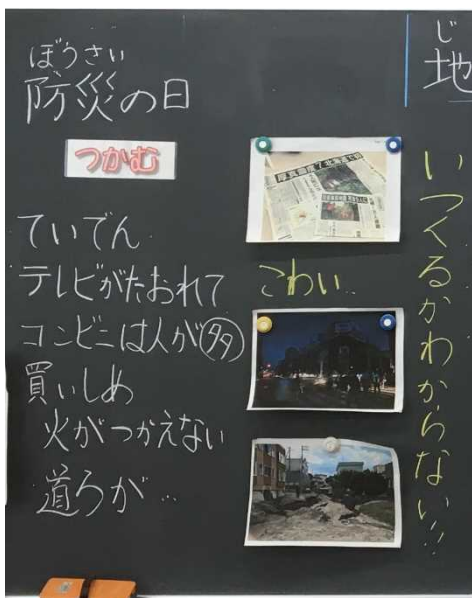 ぼうさい
防災の日
つかむ
ていでん
テレビがたおれて
コンビニは人が多
買いしめ
火がつかえない
道ろが…
こわい…
じ
地
いつくるかわからない!!